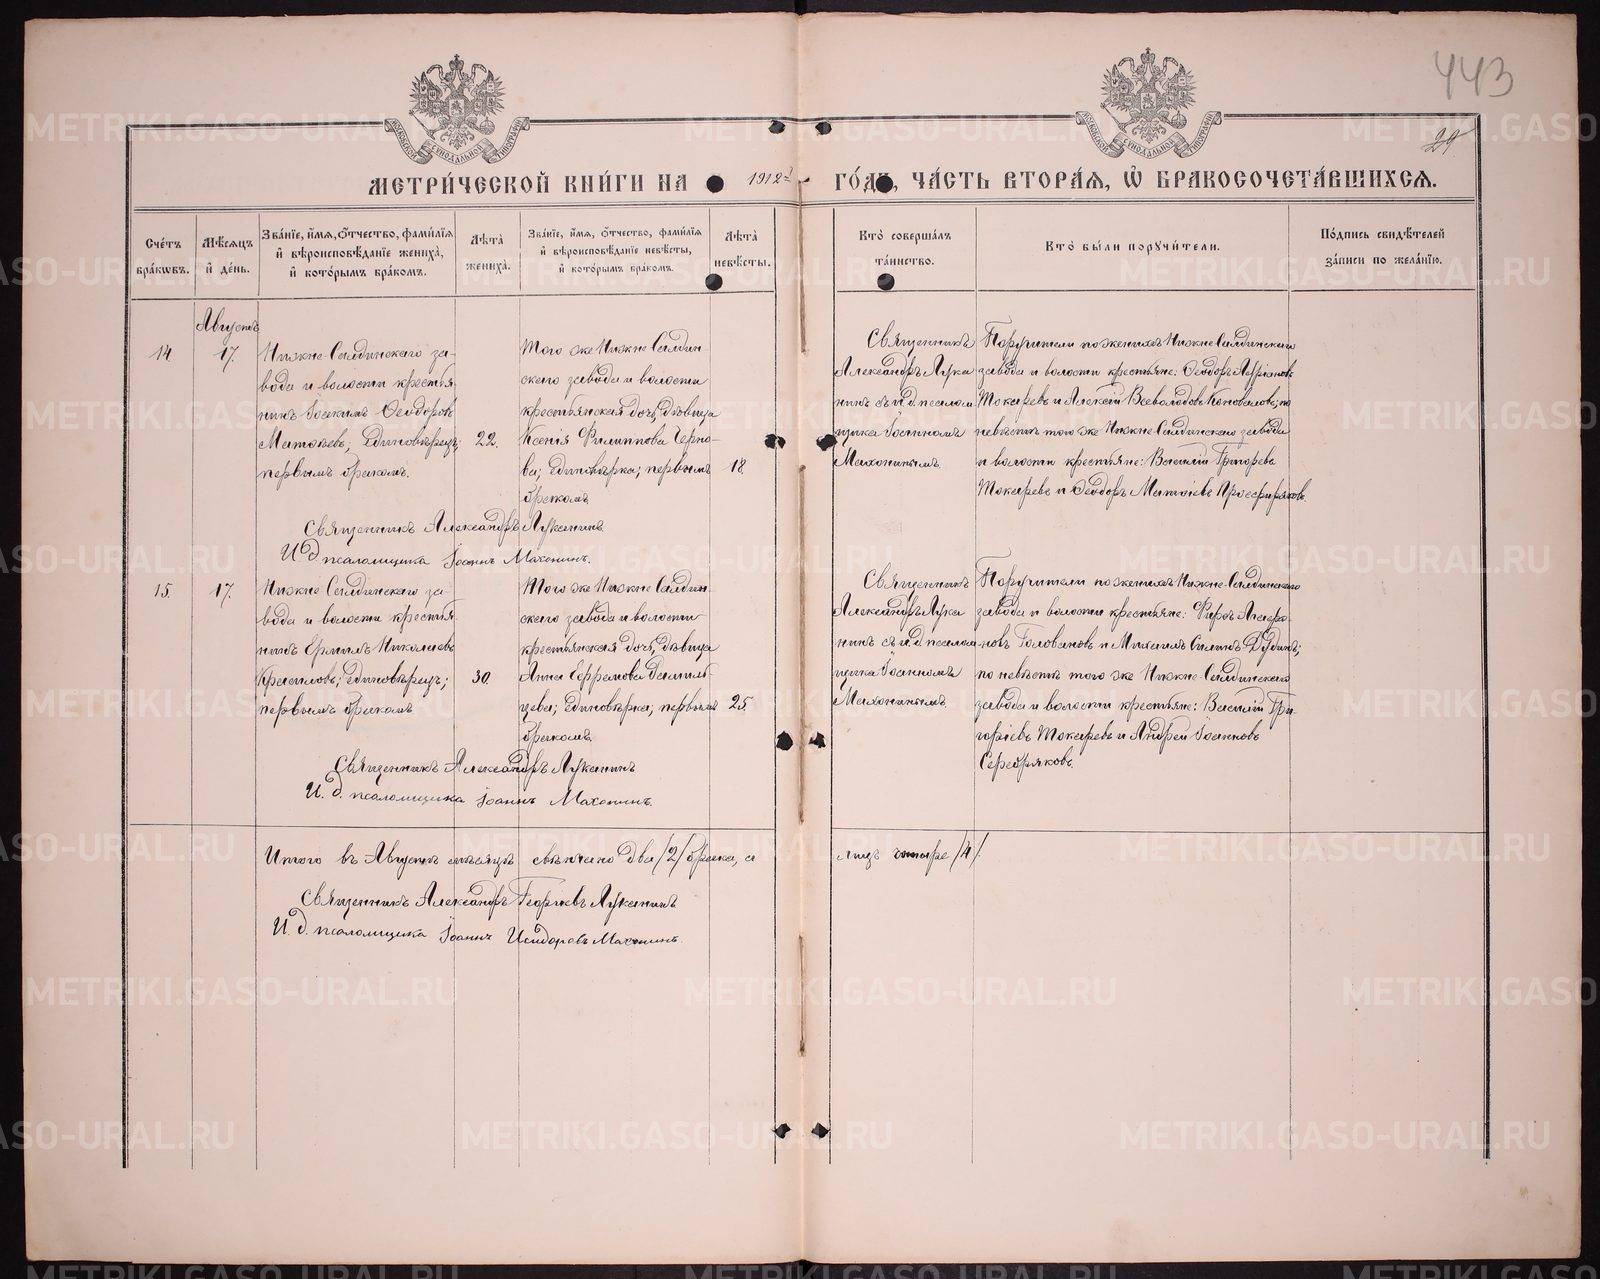 443
29
МЕТРИ́ЧЕСКОЙ КНИ́ГИ НА 1912й ГО́ДЪ, ЧА́СТЬ ВТОРА́Я, Ѡ҆ БРАКОСОЧЕТА́ВШИХСЯ.
Сче́тъ бра́кѡвъ.
Мѣ́сяцъ и҆ де́нь.
Зва́нїе, и҆́мя, ѻ҆́тчество, фами́лїя и҆ вѣроисповѣ́данїе жениха̀, и҆ кото́рымъ бра́комъ.
Лѣ́та жениха̀.
Зва́нїе, и҆́мя, ѻ҆́тчество, фами́лїя и҆ вѣроисповѣ́данїе невѣ́сты, и҆ кото́рымъ бра́комъ.
Лѣ́та невѣ́сты.
Кто̀ соверша́лъ та́инство.
Кто̀ бы́ли поручи́тели.
По́дпись свидѣ́телей за́писи по жела́нїю.
Августъ
14
17.
Нижне-Салдинскаго за-
вода и волости крестья-
нинъ Іоакимъ Ѳеодоровъ
Матвѣевъ; единовѣрецъ;
первымъ бракомъ.
22.
Того же Нижне-Салдин-
скаго завода и волости
крестьянская дочь, дѣвица
Ксенія Филиппова Черно-
ва; единовѣрка; первымъ
бракомъ
18
Священникъ
Александръ Лука
нинъ съ и.д. псалом
щика Іоанномъ
Махонинымъ.
Поручители по женихѣ Нижне-Салдинскаго
завода и волости крестьяне: Ѳеодоръ
Токаревъ и Алексѣй Всеволодовъ Коноваловъ; по
невѣстѣ того же Нижне-Салдинскаго завода
и волости крестьяне: Василій Григорьевъ
Токаревъ и Ѳеодоръ Матвіевъ
Священникъ Александръ Луканинъ.
И. д. псаломщика Іоаннъ Махонинъ.
15.
17.
Нижне Салдинскаго за-
вода и волости крестья-
нинъ Ермилъ Николаевъ
единовѣрецъ;
первымъ бракомъ
30.
Того же Нижне Салдин-
скаго завода и волости
крестьянская дочь, дѣвица
Анна Ефремова
цева; единовѣрка; первымъ
бракомъ.
25.
Священникъ
Александръ Лука
нинъ съ и.д. псалом
щика Іоанномъ
Махонинымъ.
Поручители по женихѣ Нижне-Салдинскаго
завода и волости крестьяне:
новъ Головановъ и Михаилъ
по невѣстѣ того же Нижне-Салдинскаго
завода и волости крестьяне: Василій Гри-
горіевъ Токаревъ и Андрей Іоанновъ
Серебряковъ.
Священникъ Александръ Луканинъ
И. д. псаломщика Іоаннъ Махонинъ.
Итого въ Августѣ мѣсяцѣ свѣнчано два /2/ брака, а лицъ четыре /4/.
Священникъ Александръ Георгіевъ Луканинъ
И. д. псаломщика Іоаннъ Исидоровъ Махонинъ.
METRIKI.GASO-URAL.RU